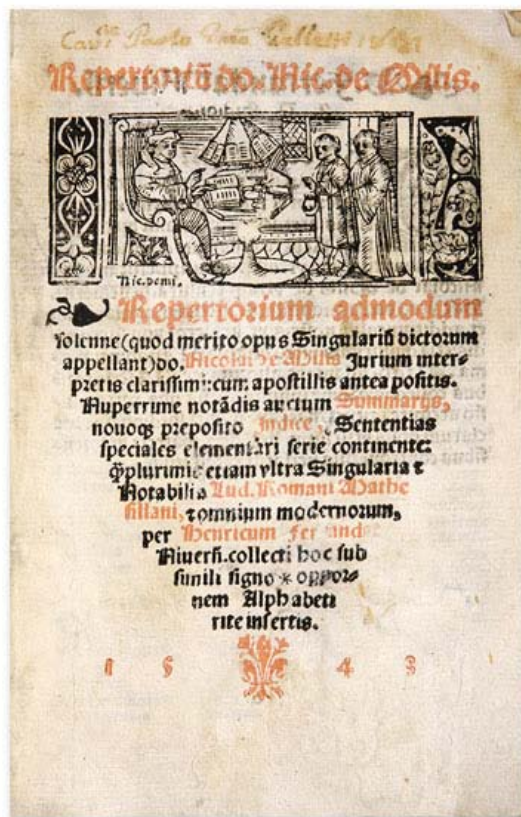 Repertoriũ do. Nic. de Milis.
Nic. de mi.
Repertorium admodum
solenne (quod merito opus Singulariũ dictorum
appellant) do. Nicolai de Milis Jurium inter⸗
pretis clarissimi: cum apostillis antea positis.
Nuperrime notãdis auctum Summarijs,
nouoqꝫ preposito Indice, Sententias
speciales elementari serie continente:
q̃plurimis etiam vltra Singularia ⁊
Notabilia Lud. Romani Mathe
sillani, ⁊ omnium modernorum,
per Henricum Ferrand
Niuerñ. collecti hoc sub
simili signo * oppor⸗
nem Alphabeti
rite insertis.
1 5 4 3